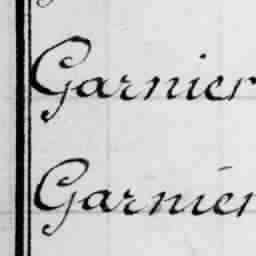 Garnier
Garnier